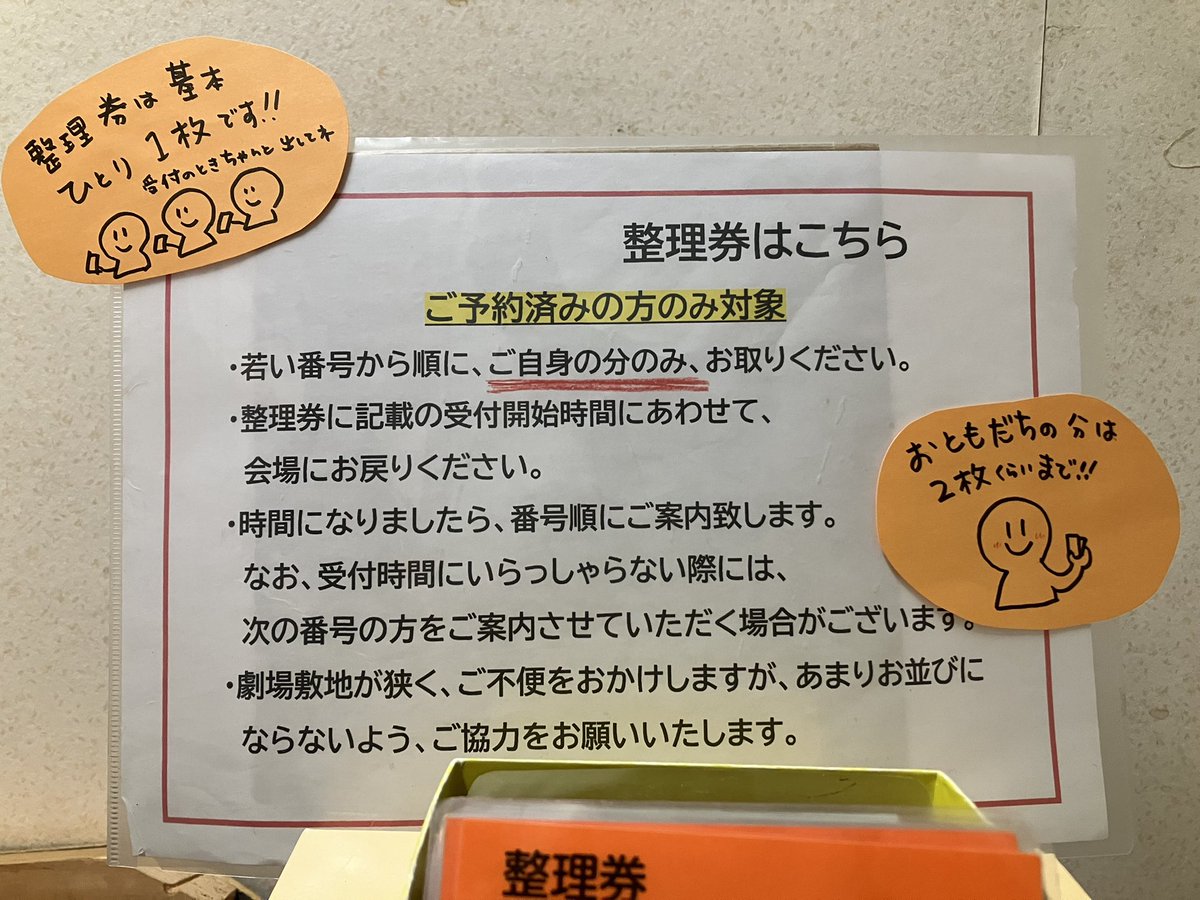 整理券は基本
ひとり1枚です!!
受付のときちゃんと出してネ
整理券はこちら
ご予約済みの方のみ対象
・若い番号から順に、ご自身の分のみ、お取りください。
・整理券に記載の受付開始時間にあわせて、
会場にお戻りください。
・時間になりましたら、番号順にご案内致します。
なお、受付時間にいらっしゃらない際には、
次の番号の方をご案内させていただく場合がございます。
・劇場敷地が狭く、ご不便をおかけしますが、あまりお並びに
ならないよう、ご協力をお願いいたします。
おともだちの分は
2枚くらいまで!!
整理券